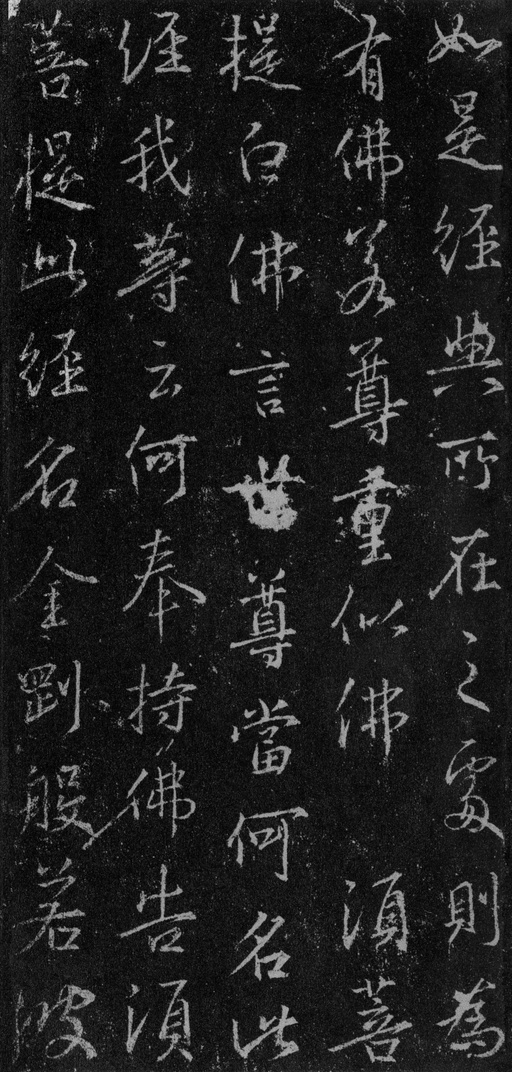 如是經典所在之處則為
有佛若尊重似佛 須菩
提白佛言世尊當何名此
經我等云何奉持佛告須
菩提此經名金剛般若波